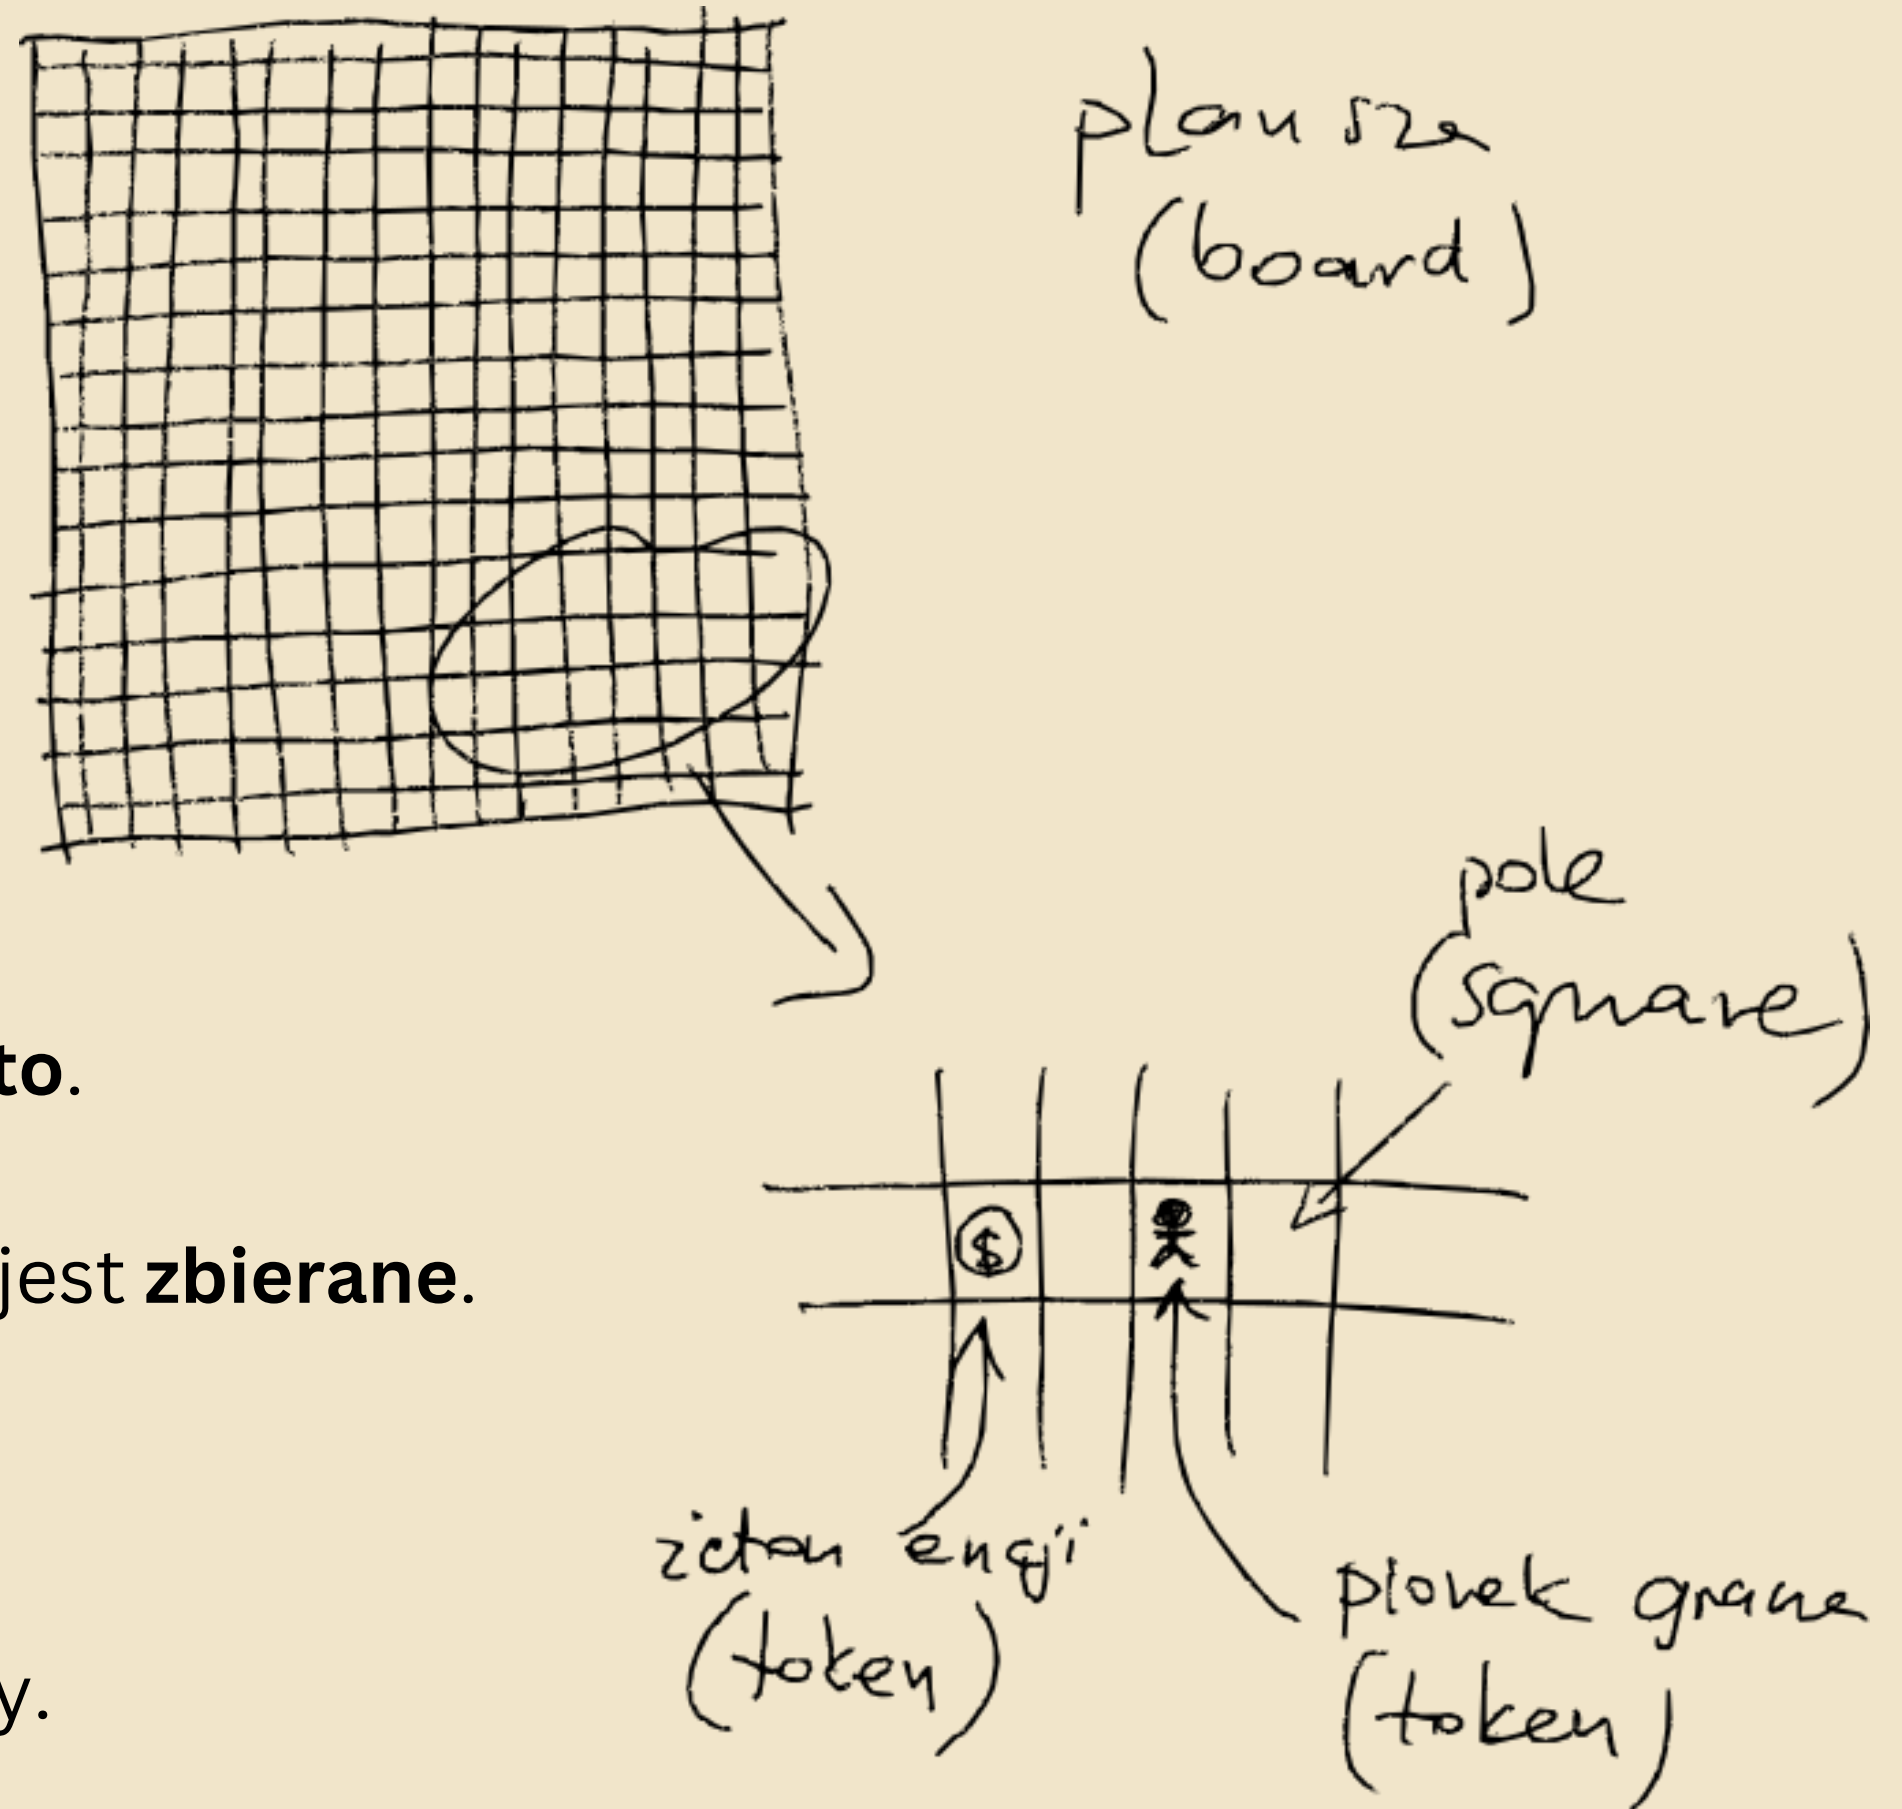 plansza
(board)
pole
(square)
to.
jest zbierane.
$
żeton engji
(token)
pionek gracza
(token)
y.